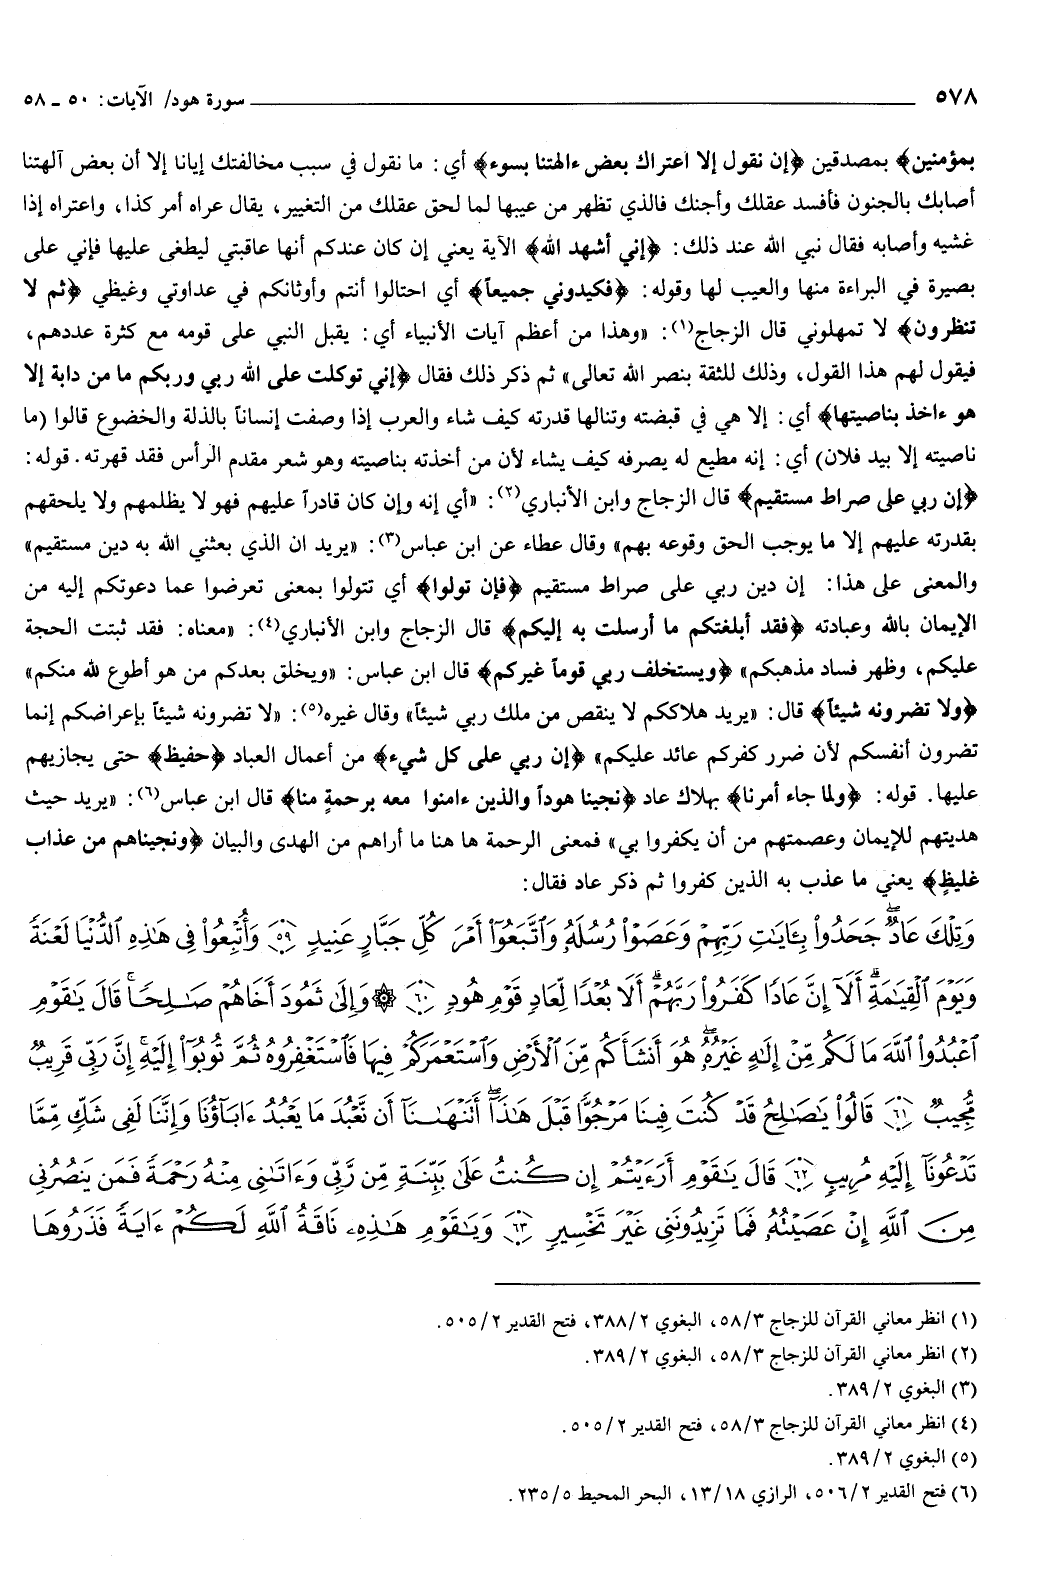 ٥٧٨ ــــــ سورة هود/ الآيات: ٥٠ ـ ٥٨
بمؤمنين﴾ بمصدقين ﴿إن نقول إلا اعتراك بعض ءالهتنا بسوء﴾ أي: ما نقول في سبب مخالفتك إيانا إلا أن بعض آلهتنا
أصابك بالجنون فأفسد عقلك وأجنك فالذي تظهر من عيبها لما لحق عقلك من التغيير، يقال عراه أمر كذا، واعتراه إذا
غشيه وأصابه فقال نبي الله عند ذلك: ﴿إني أشهد الله﴾ الآية يعني إن كان عندكم أنها عاقبتي ليطغى عليها فإني على
بصيرة في البراءة منها والعيب لها وقوله: ﴿فكيدوني جميعاً﴾ أي احتالوا أنتم وأوثانكم في عداوتي وغيظي ﴿ثم لا
تنظرون﴾ لا تمهلوني قال الزجاج(١): «وهذا من أعظم آيات الأنبياء أي: يقبل النبي على قومه مع كثرة عددهم،
فيقول لهم هذا القول، وذلك للثقة بنصر الله تعالى» ثم ذكر ذلك فقال ﴿إني توكلت على الله ربي وربكم ما من دابة إلا
هو ءاخذ بناصيتها﴾ أي: إلا هي في قبضته وتنالها قدرته كيف شاء والعرب إذا وصفت إنساناً بالذلة والخضوع قالوا (ما
ناصيته إلا بيد فلان) أي: إنه مطيع له يصرفه كيف يشاء لأن من أخذته بناصيته وهو شعر مقدم الرأس فقد قهرته. قوله:
﴿إن ربي على صراط مستقيم﴾ قال الزجاج وابن الأنباري(٢): «أي إنه وإن كان قادراً عليهم فهو لا يظلمهم ولا يلحقهم
بقدرته عليهم إلا ما يوجب الحق وقوعه بهم» وقال عطاء عن ابن عباس(٣): «يريد ان الذي بعثني الله به دين مستقيم»
والمعنى على هذا: إن دين ربي على صراط مستقيم ﴿فإن تولوا﴾ أي تتولوا بمعنى تعرضوا عما دعوتكم إليه من
الإيمان بالله وعبادته ﴿فقد أبلغتكم ما أرسلت به إليكم﴾ قال الزجاج وابن الأنباري(٤): «معناه: فقد ثبتت الحجة
عليكم، وظهر فساد مذهبكم» ﴿ويستخلف ربي قوماً غيركم﴾ قال ابن عباس: «ويخلق بعدكم من هو أطوع لله منكم»
﴿ولا تضرونه شيئاً﴾ قال: «يريد هلاككم لا ينقص من ملك ربي شيئاً» وقال غيره(٥): «لا تضرونه شيئاً بإعراضكم إنما
تضرون أنفسكم لأن ضرر كفركم عائد عليكم» ﴿إن ربي على كل شيء﴾ من أعمال العباد ﴿حفيظ﴾ حتى يجازيهم
عليها. قوله: ﴿ولما جاء أمرنا﴾ بهلاك عاد ﴿نجينا هوداً والذين ءامنوا معه برحمةٍ منا﴾ قال ابن عباس(٦): «يريد حيث
هديتهم للإيمان وعصمتهم من أن يكفروا بي» فمعنى الرحمة ها هنا ما أراهم من الهدى والبيان ﴿ونجيناهم من عذاب
غليظٍ﴾ يعني ما عذب به الذين كفروا ثم ذكر عاد فقال:
وَتِلْكَ عَادٌ جَحَدُوا۟ بِـَٔايَٰتِ رَبِّهِمْ وَعَصَوْا۟ رُسُلَهُۥ وَٱتَّبَعُوٓا۟ أَمْرَ كُلِّ جَبَّارٍ عَنِيدٍ ٥٩ وَأُتْبِعُوا۟ فِى هَٰذِهِ ٱلدُّنْيَا لَعْنَةً
وَيَوْمَ ٱلْقِيَٰمَةِ أَلَآ إِنَّ عَادًا كَفَرُوا۟ رَبَّهُمْ أَلَا بُعْدًا لِّعَادٍ قَوْمِ هُودٍ ٦٠ ۞ وَإِلَىٰ ثَمُودَ أَخَاهُمْ صَٰلِحًا قَالَ يَٰقَوْمِ
ٱعْبُدُوا۟ ٱللَّهَ مَا لَكُم مِّنْ إِلَٰهٍ غَيْرُهُۥ هُوَ أَنشَأَكُم مِّنَ ٱلْأَرْضِ وَٱسْتَعْمَرَكُمْ فِيهَا فَٱسْتَغْفِرُوهُ ثُمَّ تُوبُوٓا۟ إِلَيْهِ إِنَّ رَبِّى قَرِيبٌ
مُّجِيبٌ ٦١ قَالُوا۟ يَٰصَٰلِحُ قَدْ كُنتَ فِينَا مَرْجُوًّا قَبْلَ هَٰذَآ أَتَنْهَىٰنَآ أَن نَّعْبُدَ مَا يَعْبُدُ ءَابَآؤُنَا وَإِنَّنَا لَفِى شَكٍّ مِّمَّا
تَدْعُونَآ إِلَيْهِ مُرِيبٍ ٦٢ قَالَ يَٰقَوْمِ أَرَءَيْتُمْ إِن كُنتُ عَلَىٰ بَيِّنَةٍ مِّن رَّبِّى وَءَاتَىٰنِى مِنْهُ رَحْمَةً فَمَن يَنصُرُنِى
مِنَ ٱللَّهِ إِنْ عَصَيْتُهُۥ فَمَا تَزِيدُونَنِى غَيْرَ تَخْسِيرٍ ٦٣ وَيَٰقَوْمِ هَٰذِهِۦ نَاقَةُ ٱللَّهِ لَكُمْ ءَايَةً فَذَرُوهَا
(١) انظر معاني القرآن للزجاج ٥٨/٣، البغوي ٣٨٨/٢، فتح القدير ٥٠٥/٢.
(٢) انظر معاني القرآن للزجاج ٥٨/٣، البغوي ٣٨٩/٢.
(٣) البغوي ٣٨٩/٢.
(٤) انظر معاني القرآن للزجاج ٥٨/٣، فتح القدير ٥٠٥/٢.
(٥) البغوي ٣٨٩/٢.
(٦) فتح القدير ٥٠٦/٢، الرازي ١٣/١٨، البحر المحيط ٢٣٥/٥.